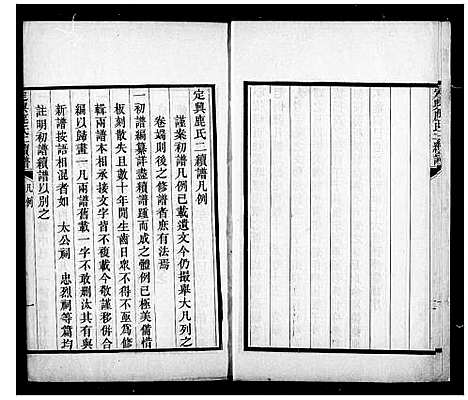 定興鹿氏二續譜
定興鹿氏二續譜凡例
謹案初譜凡例已載遺文今仍撮舉大凡列之
卷端則後之修譜者庶有法焉
一初譜編纂詳盡續譜踵而成之體例已極美備惜
板刻散失且數十年間生齒日眾不得不亟為修
輯兩譜本相承接文字皆不複載今敬謹移併合
編以歸畫一凡兩譜舊載一字不敢刪汰其有與
新譜按語相混者如 太公祠 忠烈祠等篇均
註明初譜續譜以別之
定興鹿氏二續譜 凡例